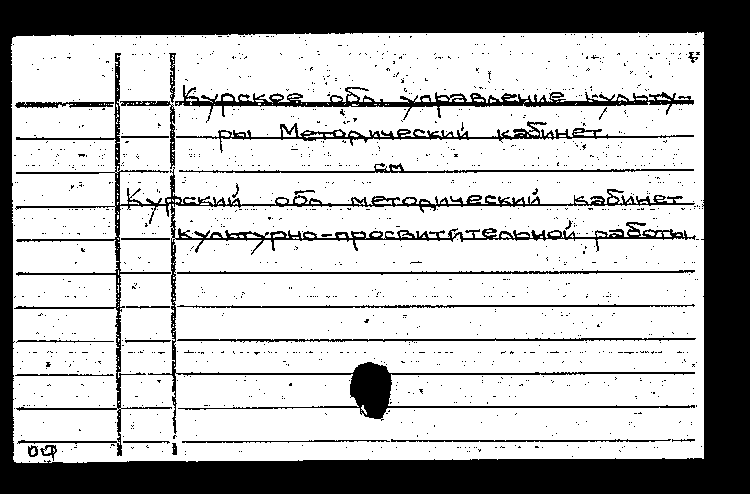 Курское обл. управление культу-
ры Методический кабинет.
см
Курский обл. методический кабинет
культурно-просвитительной работы